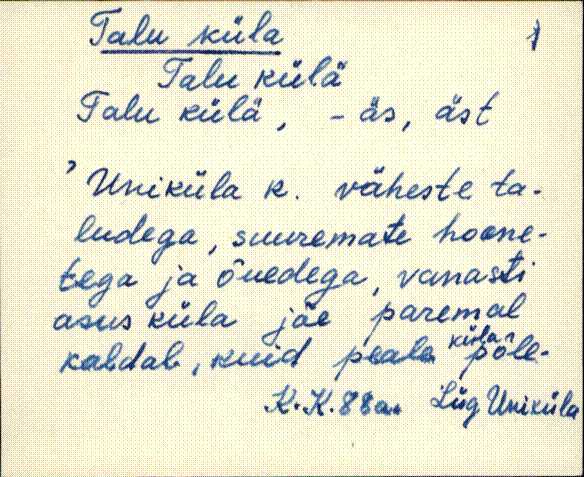 Talu küla 1
Talu külä
Talu külä, -äs, äst
’Uniküla k. väheste ta-
ludega, suuremate hoone-
tega ja õuedega, vanasti
asus küla jõe paremal
kaldal, kuid peale küla põle-
K.K. 88a. Lüg Uniküla